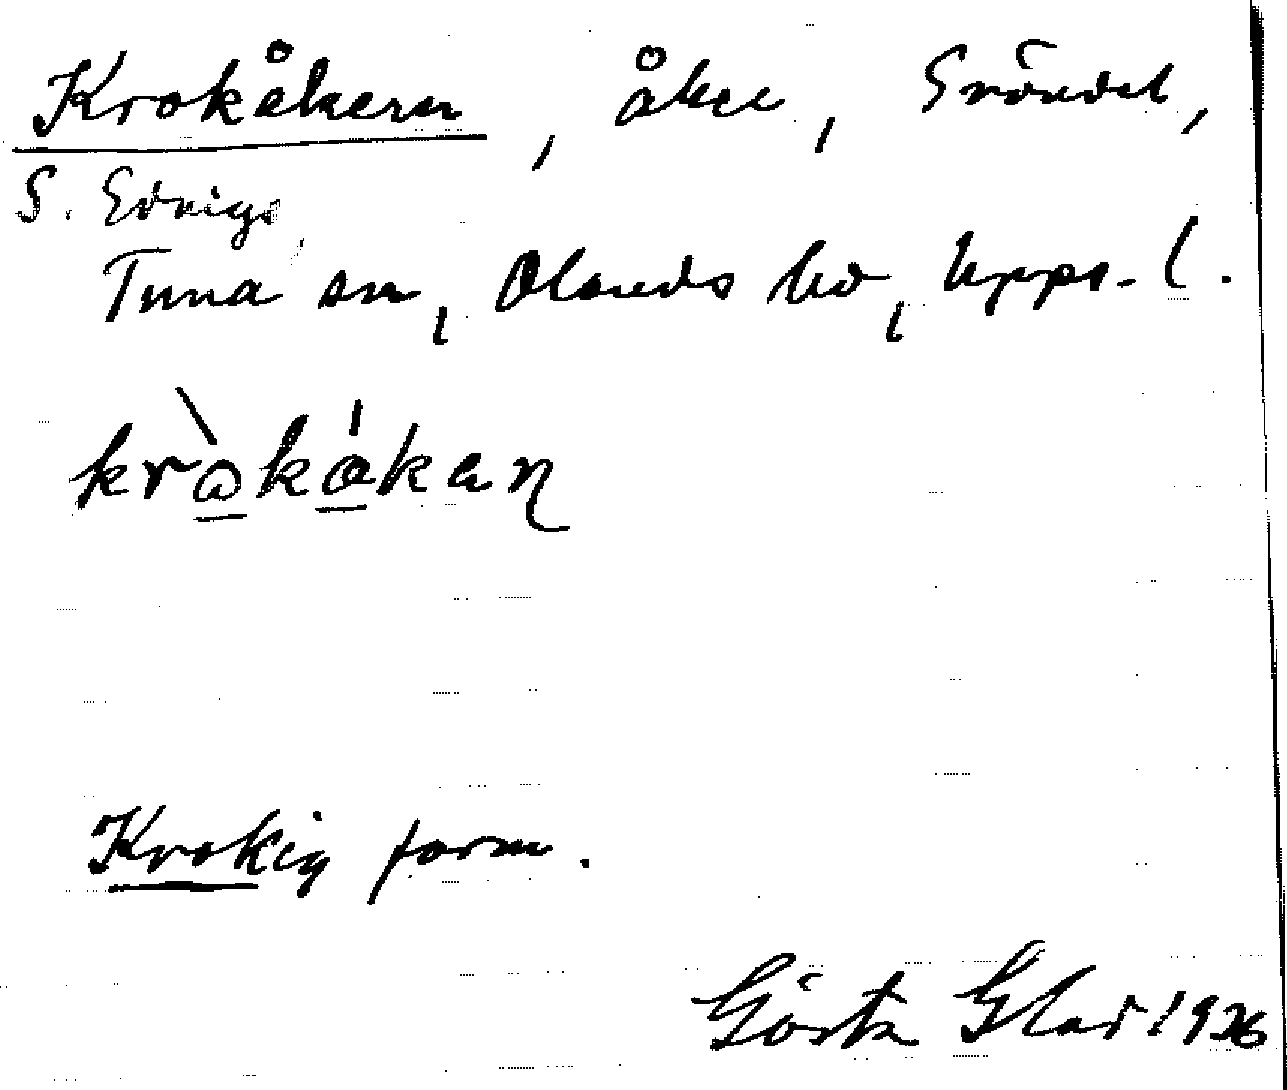 Krokåkern, åker, Gröndal,
S. Edvige,
Tuna sn, Olands hd, Upps. l.
kròkåkaɳ
Krokig form.
Gösta Glad 1926